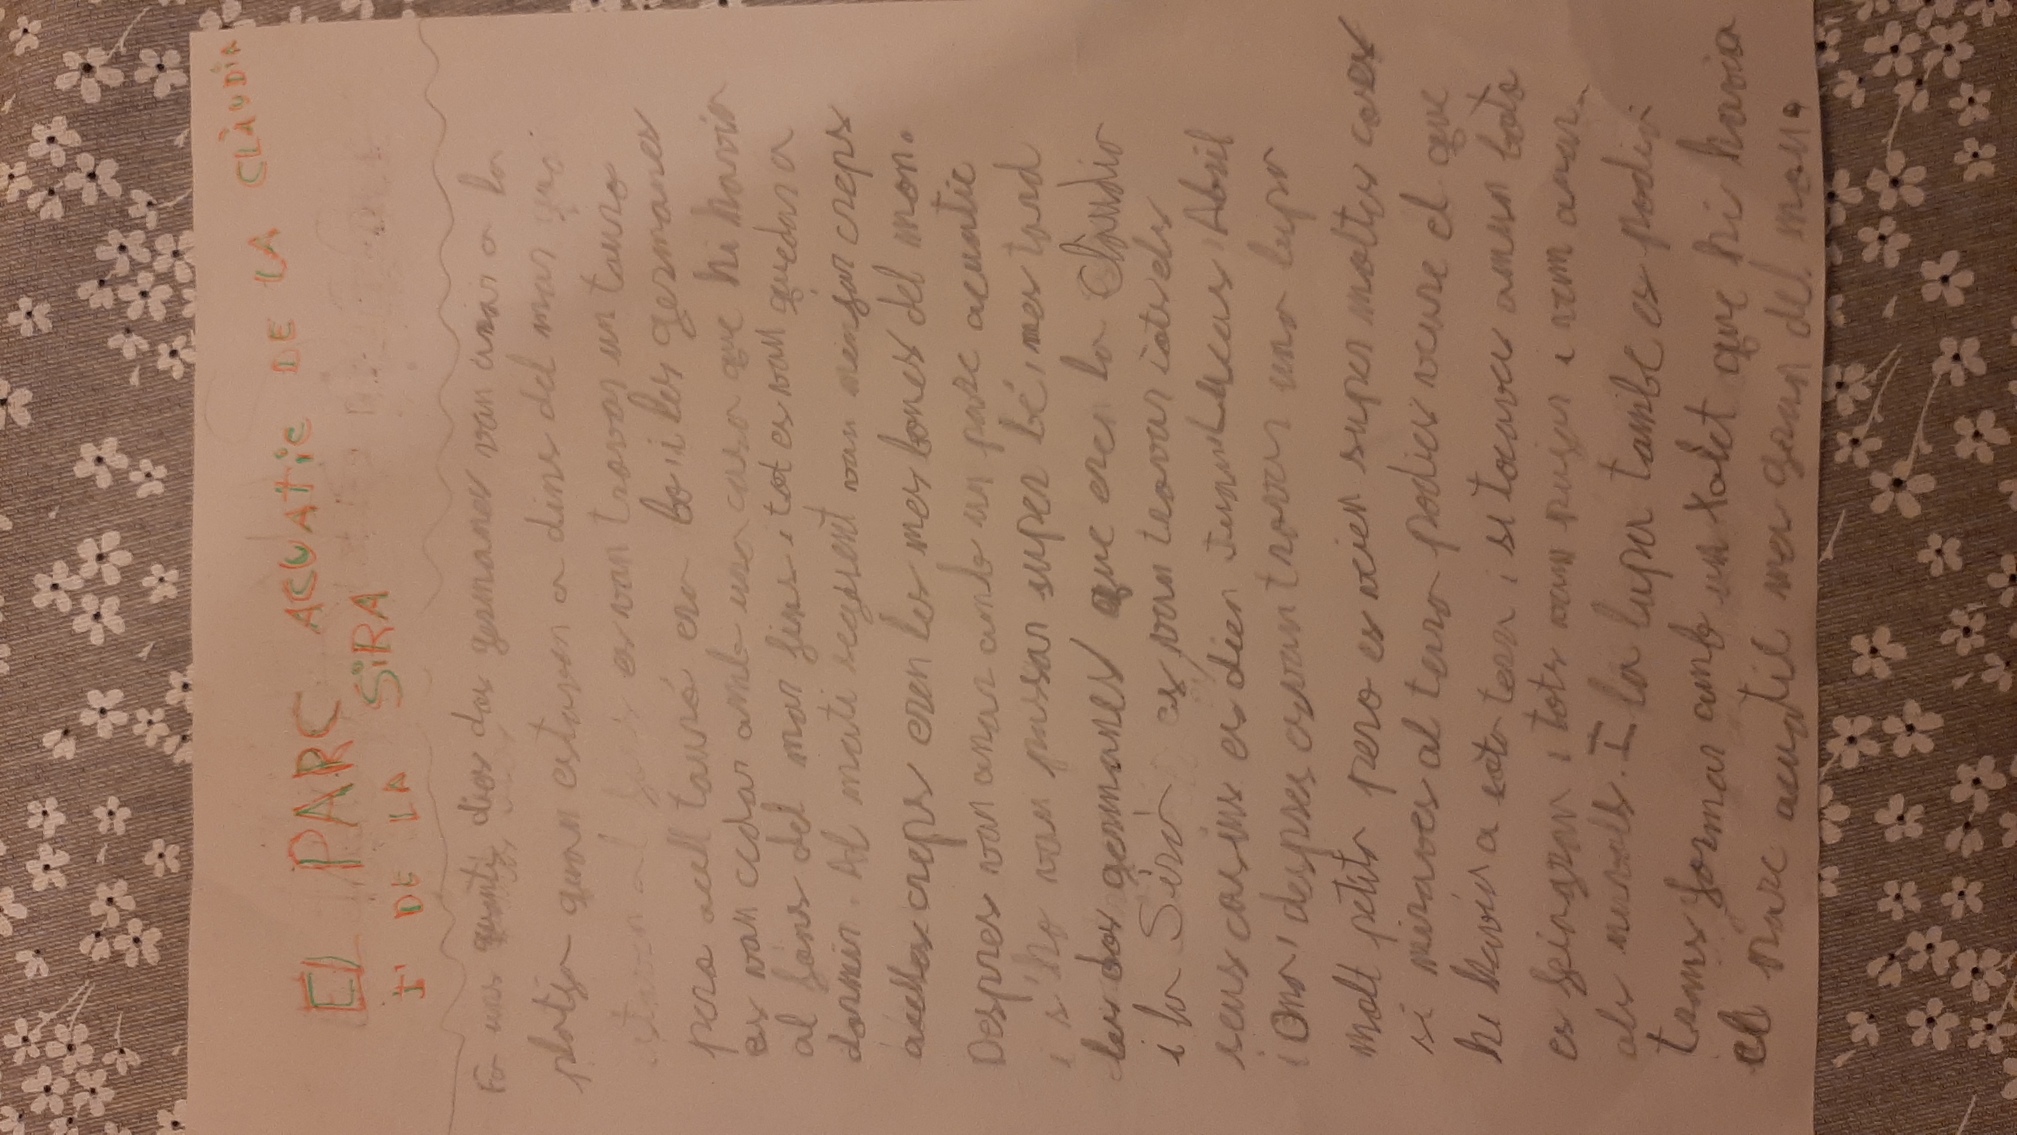 EL PARC ACUATIC DE LA CLÀUDIA
I DE LA SIRA
Fa uns quants dies dos germanes van anar a la
platja quan estaven a dins del mar
es van trovar un tauro
pero acell tauró era bo i les germanes
es van cedar amb una casa que hi havia
al fons del mar fins i tot es van quedar a
dormir. Al mati seguent van menjar creps
acelles creps eren les mes bones del mon.
Despres van anar amb un parc acuatic
i s'ho van passar super bé, mes tard
les dos germanes que eren la Clàudia
i la Sira es van trovar i els
seus cosins es dien Lucas, Abril
i Ona, despres es van trovar una lupa
molt petita pero es veien super moltes coses
si miraves al terra podies veure el que
hi havia a sota terra i si tocaves amun bots
es i tots van pujar i vam anar
als nuvols. I la lupa tambe es podia
tansformar amb un tolet que hi havia
el parc acuatic mes gran del mon.